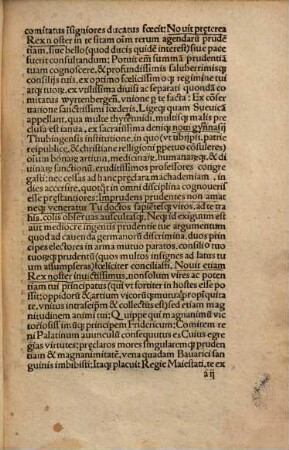 comitatus īsigniores ducatus fœcit: Nouit prȩterea
Rex noster in te sitam oīm rerum agendarū prudē
tiam, siue bello (quod ducis quidē interest) siue pace
fuerit consultandum: Potuit em̄ summā prudentiā
tuam cognoscere, & profundissimis saluberrimisq̃
consilijs tuis, ex optimo fœlicissimo q̃ regimine tui
atq̃ tuorū, ex vilissima diuisi ac separati quondā co
mitatus Wyrtenbergēn. vnione ꝑ te facta: Ex cōser
uatione sanctissimi fœderis. Ligeq̃ quam Sueuicā
appellant, qua multe thyrēnidi, multisq̃ malis pre
clusa est ianua, ex sacratissima deniq̃ nouj gymnasij
Thubingensis institutione, in quo (vt vbjpij. patrie
reipublice, & christiane religioni ꝓpetuo cōsuleres)
oīum bonaꝝ artium, medicinaꝝ, humanaꝝq̃, & di
uinaꝝ sanctionū, eruditissimos professores congre
gasti: nec cessas ad hanc prȩdaram achademiam, in
dies accersire, quotq̃t in omni disciplina cognoueris
esse prȩstantiores: Imprudens prudentes non amat
neq̃ veneratur Tu doctos sapiētesq̃ viros, ad te tra
his, colis obseruas auscultasq̃. Neq̃ id exignum est
aut mediocre ingenij prudentie tue argumentum
quod ad cauenda germanoꝝ discrimina, duos prin
cipes electores in arma mutuo paratos, consilio tuo
tuoꝝq̃ prudentū (quos multos insignes ad latus
tuum assumpseras) fœliciter conciliasti. Nouit etiam
Rex noster inuictissimus, non solum vires ac poten
tiam tui principatus (qui vt fortiter in hostes esse pos
sit; oppidorū & artium vicorūq̃ mutua, proꝑsuiq̃ta
te, vnitus intraseipm̄ & collectus est) sed etiam mag
nitudinem animi tui: Quippe qui magnanimū vic
toriosissimūq̃ principem Fridericum: Comitem re
ni Palatinum auunculū consequutus es Cuius egre
gias virtutes; prȩclaros mores singularemq̃ pruden
tiam & magnanimitatē, vena quadam Bauarici san
guinis imbibisti: Itaq̃ placuit Regie Maiestati, te ex
a ij